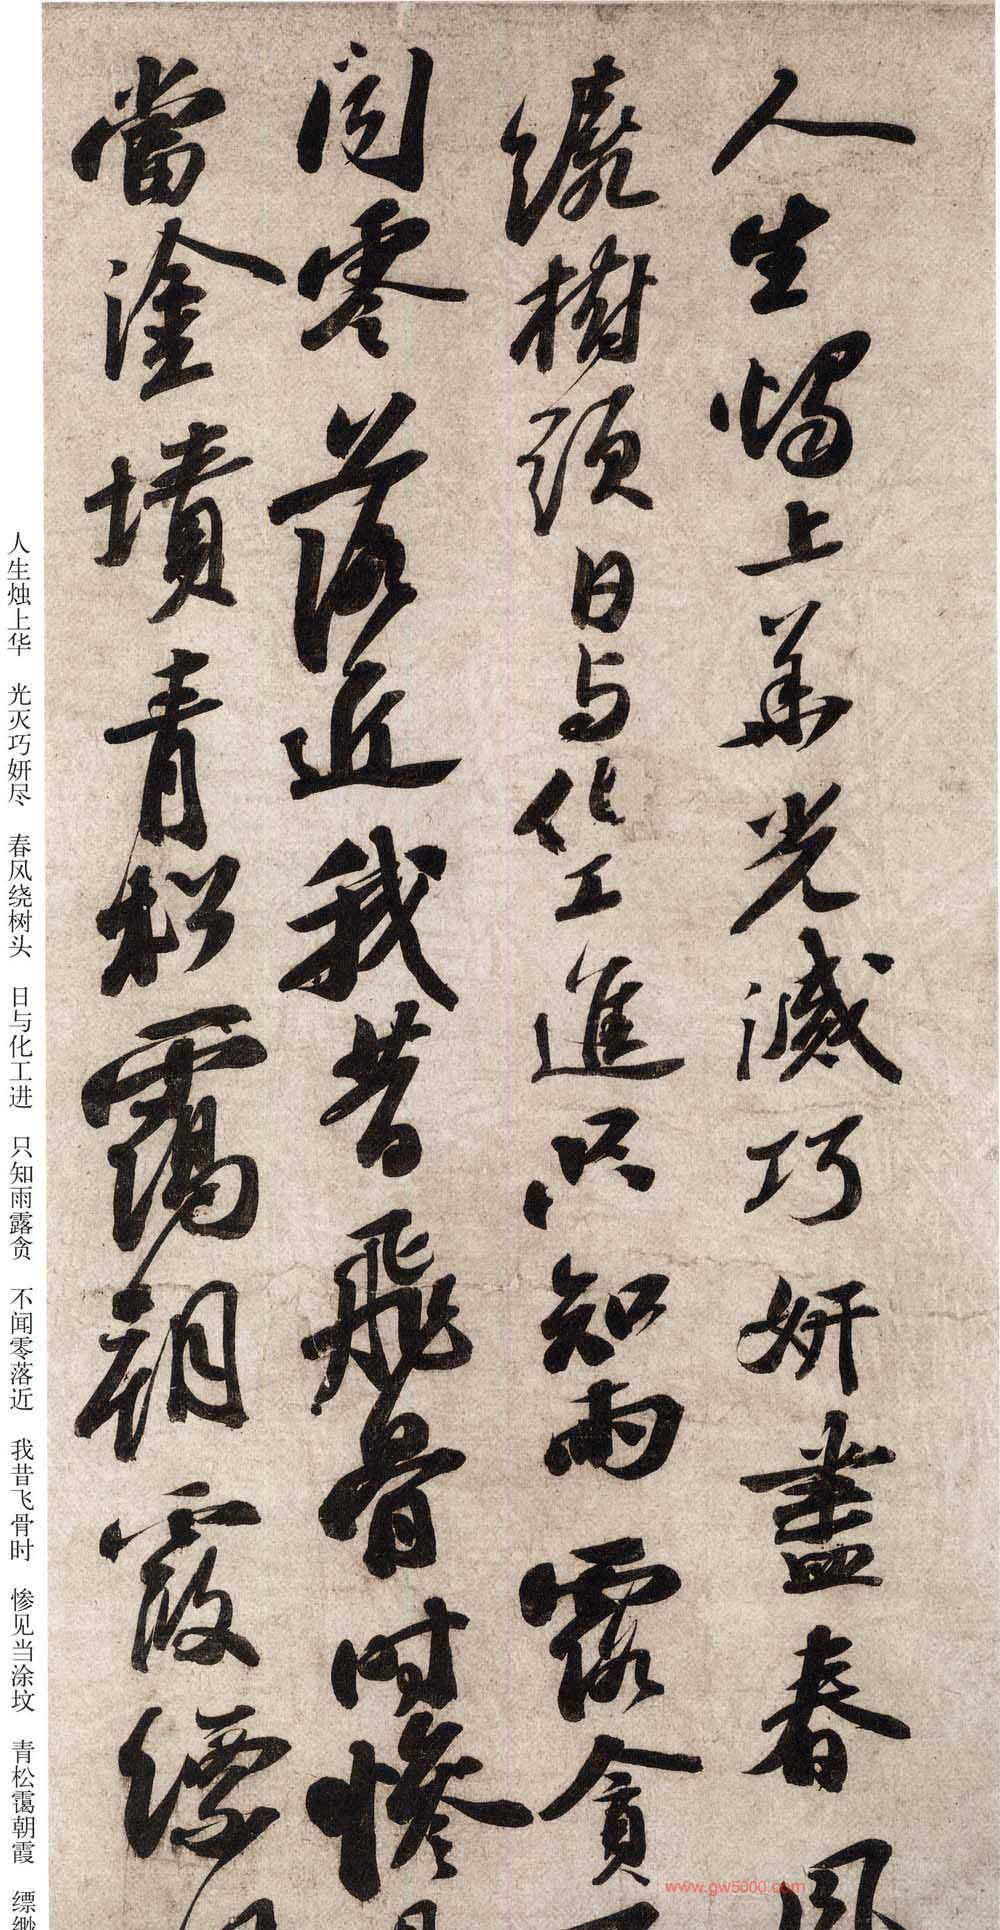 人生燭上華光滅巧妍盡春風
繞樹頭日与化工進只知雨露貪
聞零落近我昔飛骨時慘
當塗墳青松靄朝霞縹
人生烛上华 光灭巧妍尽 春风绕树头 日与化工进 只知雨露贪 不闻零落近 我昔飞骨时 惨见当涂坟 青松霭朝霞 缥缈
www.gw5000.com